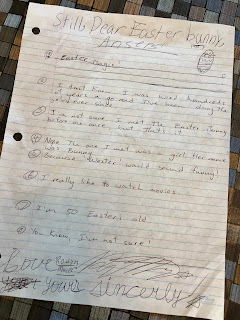 Still Dear Easter bunny
① Easter magic!
② I don't know. I was hired hundreds
of years ago and I've been doing the
job ever since
③ I'm not sure. I met the Easter Bunny
before me once, but that's it.
④ Nope. The one I met was a girl. Her name
was Bunny.
⑤ Because "Skeeter" would sound funny!
⑥ I really like to watch movies.
⑦ I'm 50 Easters old.
⑧ You know, I'm not sure!
Love
yours sincerly